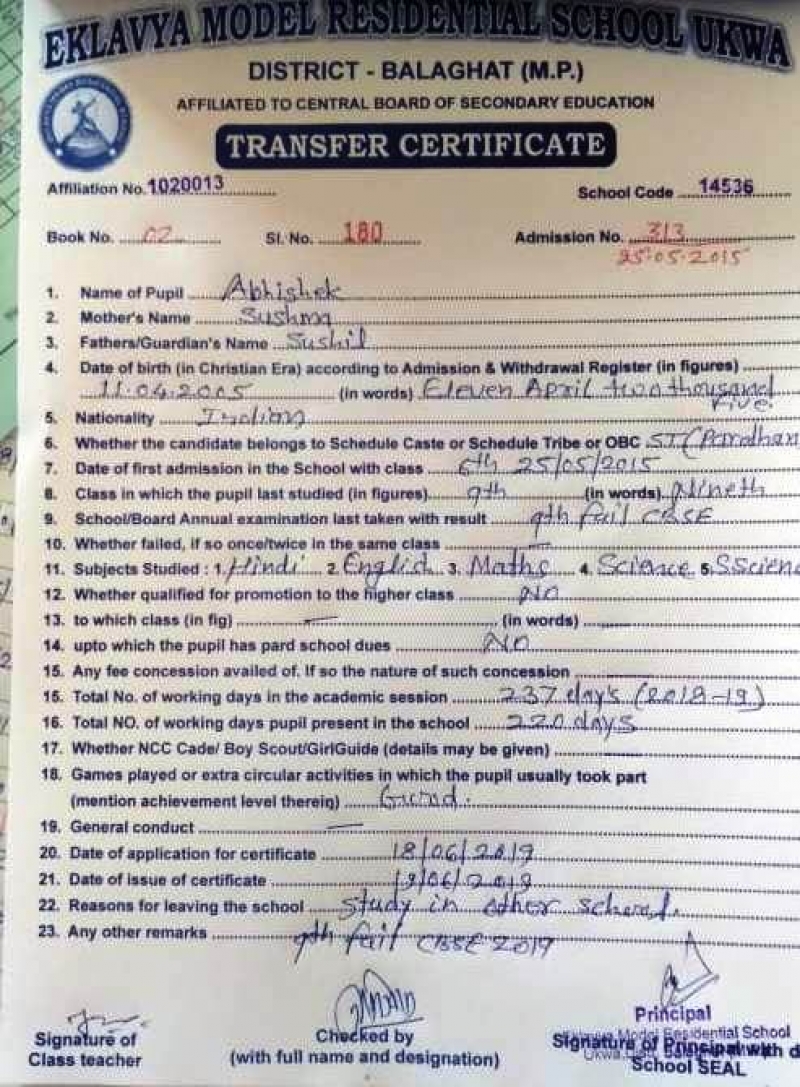 EKLAVYA MODEL RESIDENTIAL SCHOOL UKWA
DISTRICT - BALAGHAT (M.P.)
AFFILIATED TO CENTRAL BOARD OF SECONDARY EDUCATION
TRANSFER CERTIFICATE
Affiliation No. 1020013 School Code 14536
Book No. 02 Sl. No. 180 Admission No. 313
25.05.2015
1. Name of Pupil Abhishek
2. Mother's Name Sushma
3. Fathers/Guardian's Name Sushil
4. Date of birth (in Christian Era) according to Admission & Withdrawal Register (in figures)
11.04.2005 (in words) Eleven April two thousand
Five
5. Nationality Indian
6. Whether the candidate belongs to Schedule Caste or Schedule Tribe or OBC ST (Pardhan
7. Date of first admission in the School with class 6th 25/05/2015
8. Class in which the pupil last studied (in figures) 9th (in words) Nineth
9. School/Board Annual examination last taken with result 9th fail CBSE
10. Whether failed, if so once/twice in the same class —
11. Subjects Studied : 1. Hindi 2. English 3. Maths 4. Science 5. SScienc
12. Whether qualified for promotion to the higher class NO
13. to which class (in fig) — (in words)
14. upto which the pupil has pard school dues NO
15. Any fee concession availed of. If so the nature of such concession
15. Total No. of working days in the academic session 237 days (2018-19)
16. Total NO. of working days pupil present in the school 220 days
17. Whether NCC Cade/ Boy Scout/GirlGuide (details may be given)
18. Games played or extra circular activities in which the pupil usually took part
(mention achievement level therein)
19. General conduct —
20. Date of application for certificate 18/06/2019
21. Date of issue of certificate 19/06/2019
22. Reasons for leaving the school Study in other school.
23. Any other remarks 9th fail CBSE 2019
Signature of
Class teacher
Checked by
(with full name and designation)
Principal
Model Residential School
Signature of Principal with d
School SEAL